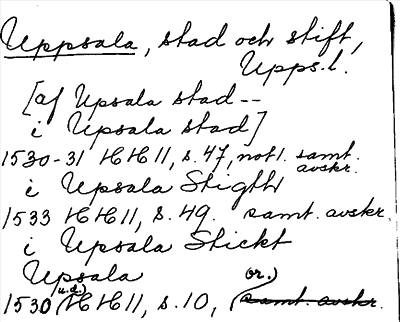 Uppsala, stad och stift,
Upps.l.
[af Upsala stad--
i Upsala stad]
1530-31 HH 11, s. 47, not 1. samt. avskr.
i Upsala Stigth
1533 HH 11, s. 49. samt. avskr.
i Upsala Stickt
Upsala
1530 (u.d.) HH 11, s. 10, (or.) samt. avskr.